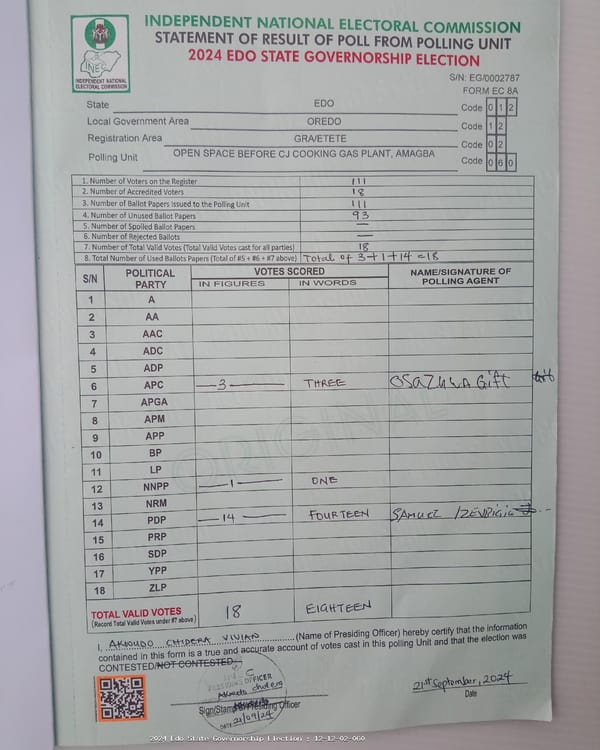 INDEPENDENT NATIONAL ELECTORAL COMMISSION
STATEMENT OF RESULT OF POLL FROM POLLING UNIT
2024 EDO STATE GOVERNORSHIP ELECTION
INEC
INDEPENDENT NATIONAL ELECTORAL COMMISSION
S/N: EG/0002787
FORM EC 8A
State EDO Code 0 1 2
Local Government Area OREDO Code 1 2
Registration Area GRA/ETETE Code 0 2
Polling Unit OPEN SPACE BEFORE CJ COOKING GAS PLANT, AMAGBA Code 0 6 0
1. Number of Voters on the Register 111
2. Number of Accredited Voters 18
3. Number of Ballot Papers Issued to the Polling Unit 111
4. Number of Unused Ballot Papers 93
5. Number of Spoiled Ballot Papers —
6. Number of Rejected Ballots —
7. Number of Total Valid Votes (Total Valid Votes cast for all parties) 18
8. Total Number of Used Ballots Papers (Total of #5 + #6 + #7 above) Total of 3+1+14=18
S/N POLITICAL PARTY VOTES SCORED NAME/SIGNATURE OF POLLING AGENT
IN FIGURES IN WORDS
1 A
2 AA
3 AAC
4 ADC
5 ADP
6 APC 3 THREE Gift
7 APGA
8 APM
9 APP
10 BP
11 LP
12 NNPP 1 ONE
13 NRM
14 PDP 14 FOURTEEN SAMUEL
15 PRP
16 SDP
17 YPP
18 ZLP
TOTAL VALID VOTES 18 EIGHTEEN
(Record Total Valid Votes under #7 above)
I, CHIDERA VIVIAN (Name of Presiding Officer) hereby certify that the information
contained in this form is a true and accurate account of votes cast in this polling Unit and that the election was
CONTESTED/NOT CONTESTED.
PRESIDING OFFICER
Sign/Stamp of Presiding Officer
DATE 21/09/24
21st September, 2024
Date
2024 Edo State Governorship Election : 12-12-02-060